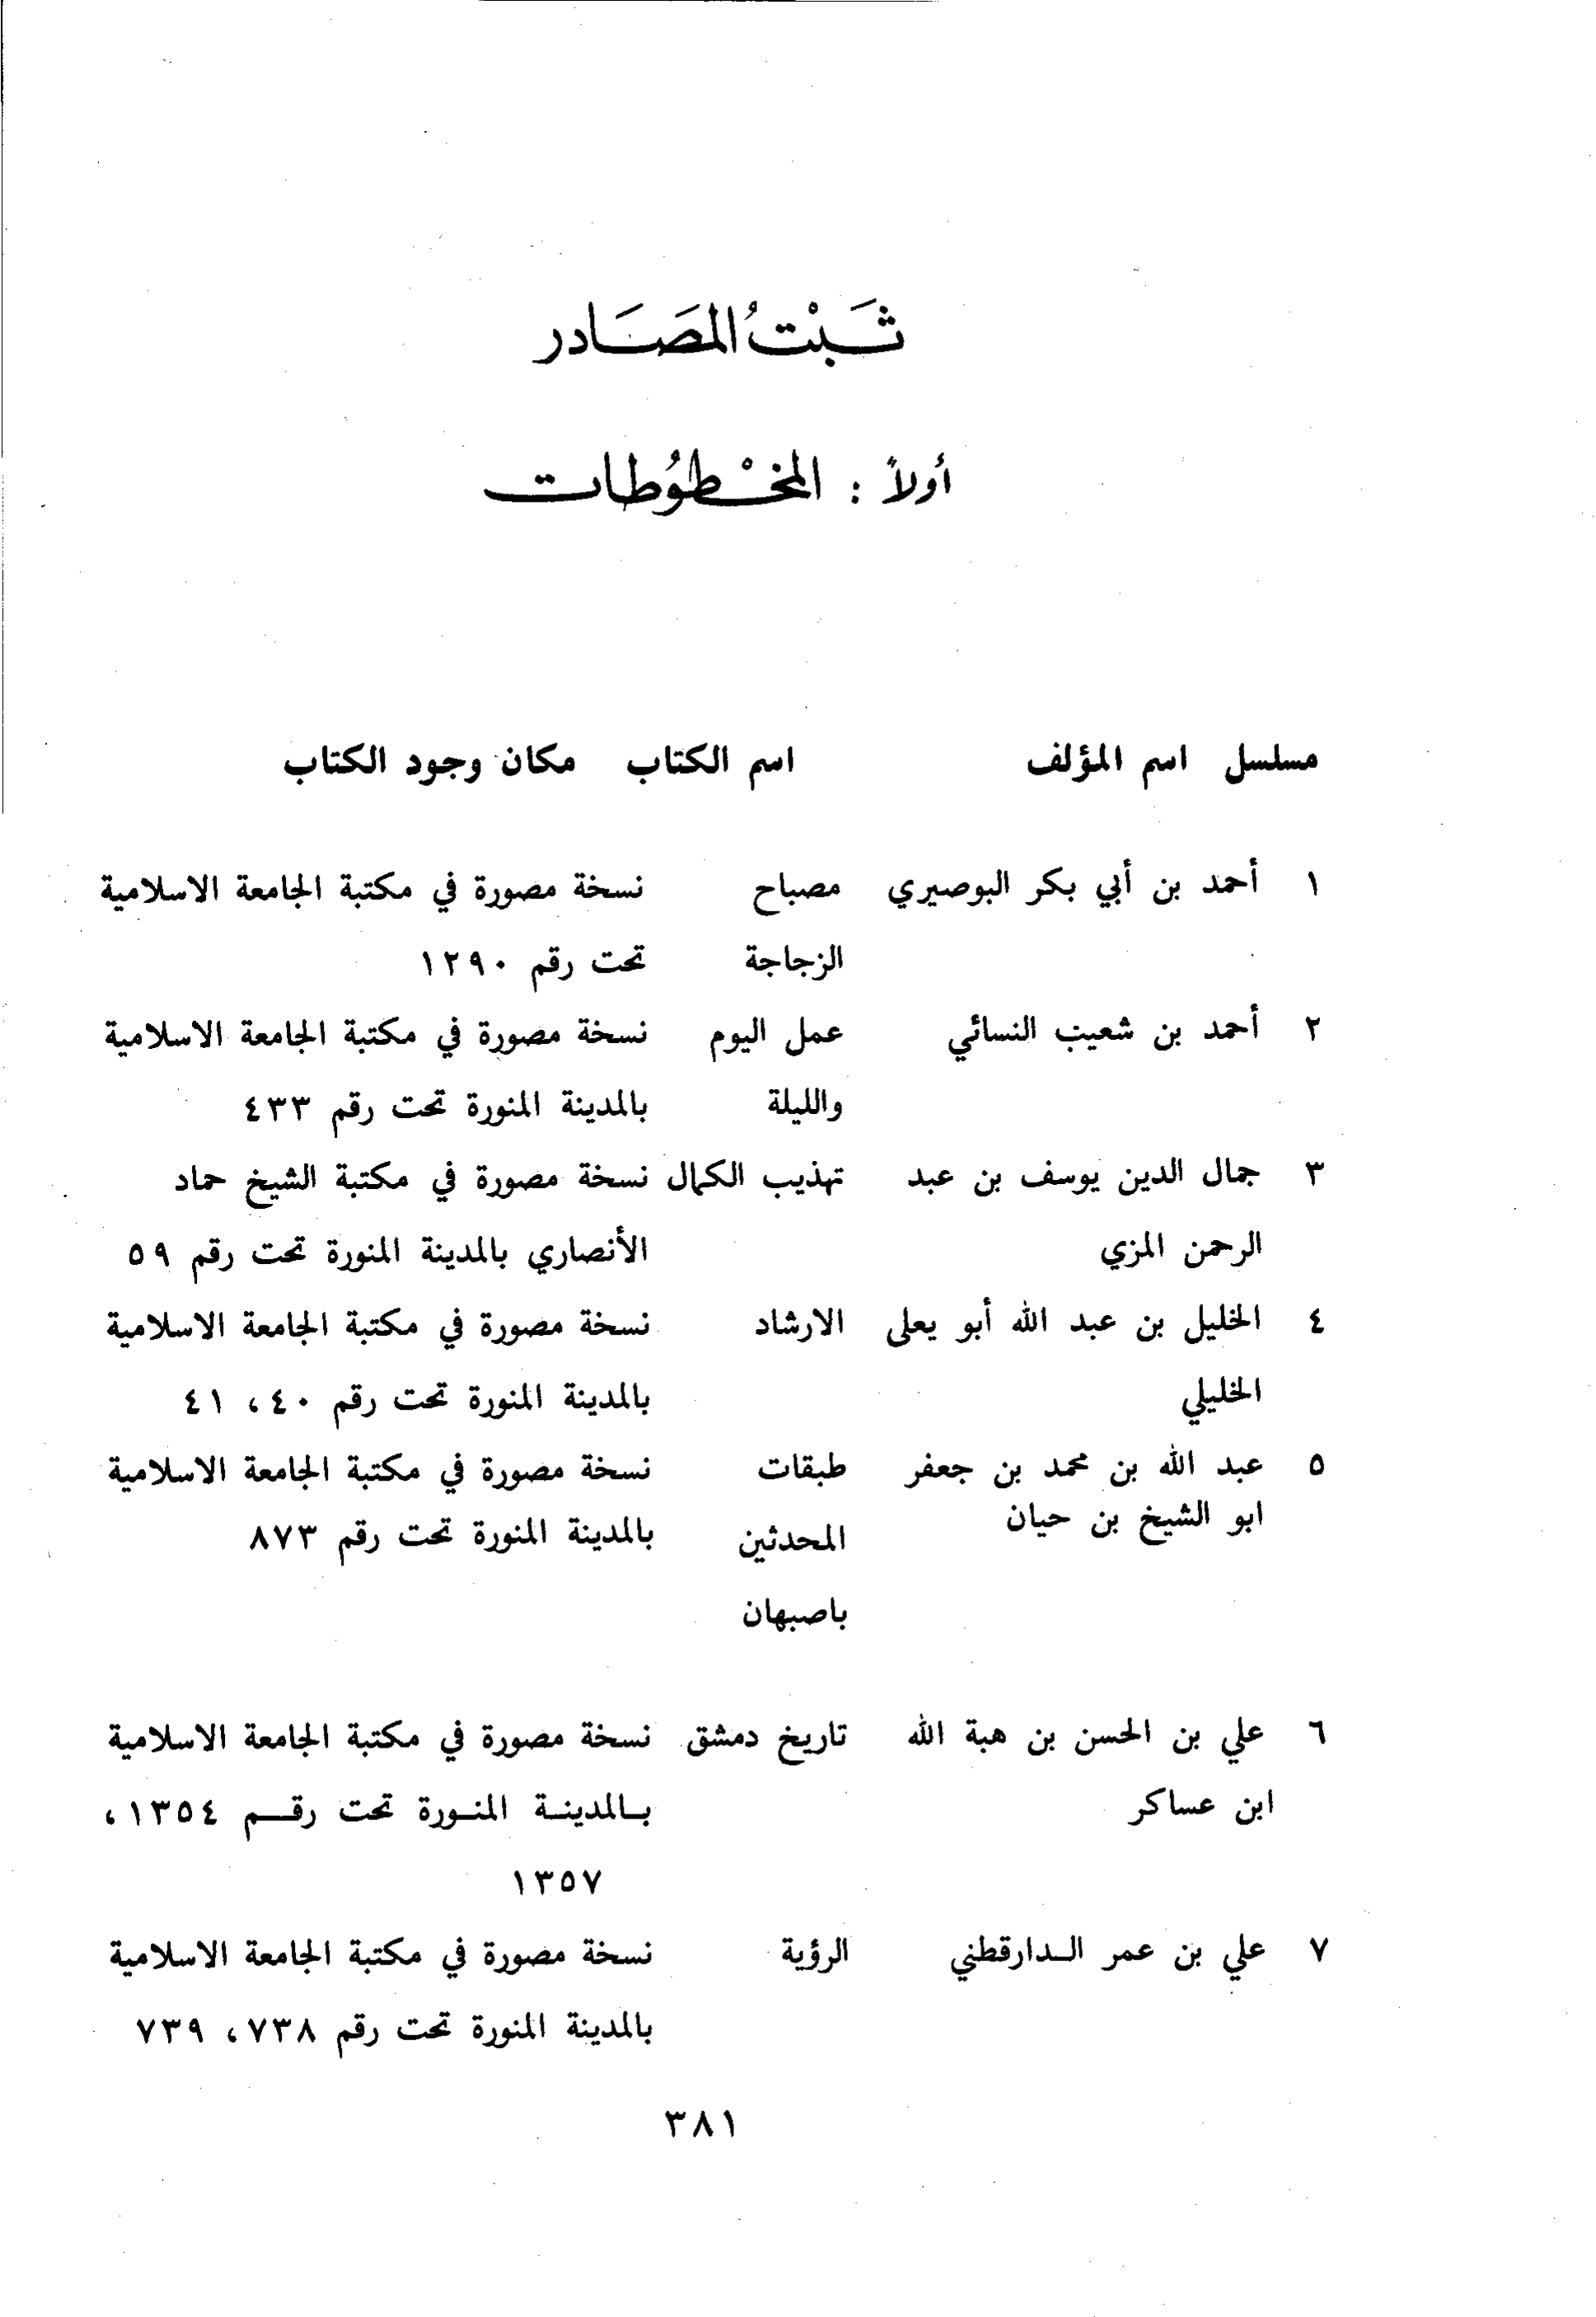 ثَبْتُ المَصَادر
أولاً : المخْطوُطات
مسلسل اسم المؤلف اسم الكتاب مكان وجود الكتاب
١ أحمد بن أبي بكر البوصيري مصباح نسخة مصورة في مكتبة الجامعة الاسلامية
الزجاجة تحت رقم ١٢٩٠
٢ أحمد بن شعيب النسائي عمل اليوم نسخة مصورة في مكتبة الجامعة الاسلامية
والليلة بالمدينة المنورة تحت رقم ٤٣٣
٣ جمال الدين يوسف بن عبد تهذيب الكمال نسخة مصورة في مكتبة الشيخ حماد
الرحمن المزي الأنصاري بالمدينة المنورة تحت رقم ٥٩
٤ الخليل بن عبد الله أبو يعلى الارشاد نسخة مصورة في مكتبة الجامعة الاسلامية
الخليلي بالمدينة المنورة تحت رقم ٤٠، ٤١
٥ عبد الله بن محمد بن جعفر طبقات نسخة مصورة في مكتبة الجامعة الاسلامية
ابو الشيخ بن حيان المحدثين بالمدينة المنورة تحت رقم ٨٧٣
باصبهان
٦ علي بن الحسن بن هبة الله تاريخ دمشق نسخة مصورة في مكتبة الجامعة الاسلامية
ابن عساكر بالمدينة المنورة تحت رقم ١٣٥٤،
١٣٥٧
٧ علي بن عمر الدارقطني الرؤية نسخة مصورة في مكتبة الجامعة الاسلامية
بالمدينة المنورة تحت رقم ٧٣٨، ٧٣٩
٣٨١